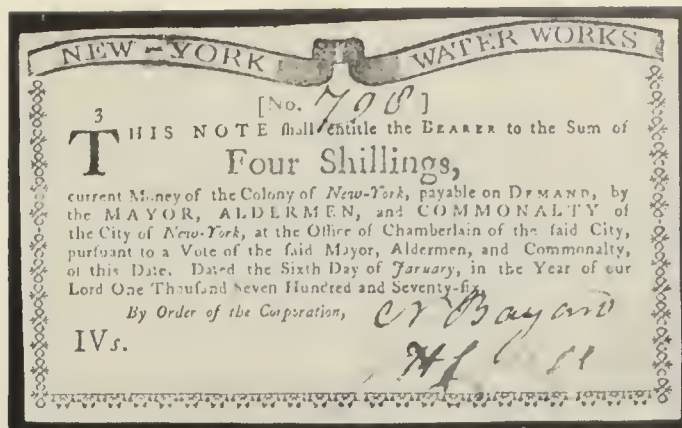 NEW-YORK WATER WORKS
[No. 798]
3
THIS NOTE ſhall entitle the BEARER to the Sum of
Four Shillings,
current Money of the Colony of New-York, payable on DEMAND, by
the MAYOR, ALDERMEN, and COMMONALTY of
the City of New-York, at the Office of Chamberlain of the ſaid City,
purſuant to a Vote of the ſaid Mayor, Aldermen, and Commonalty,
of this Date. Dated the Sixth Day of January, in the Year of our
Lord One Thouſand Seven Hundred and Seventy-ſix.
By Order of the Corporation,
N Bayard
IVs.